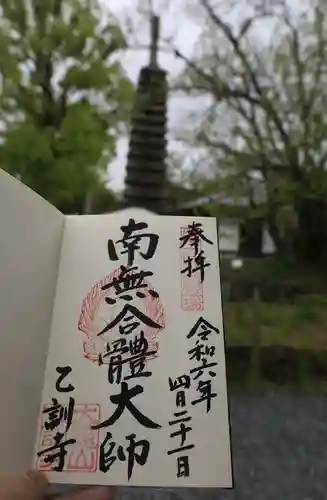 奉拝
令和六年
四月二十一日
南無合體大师
乙訓寺